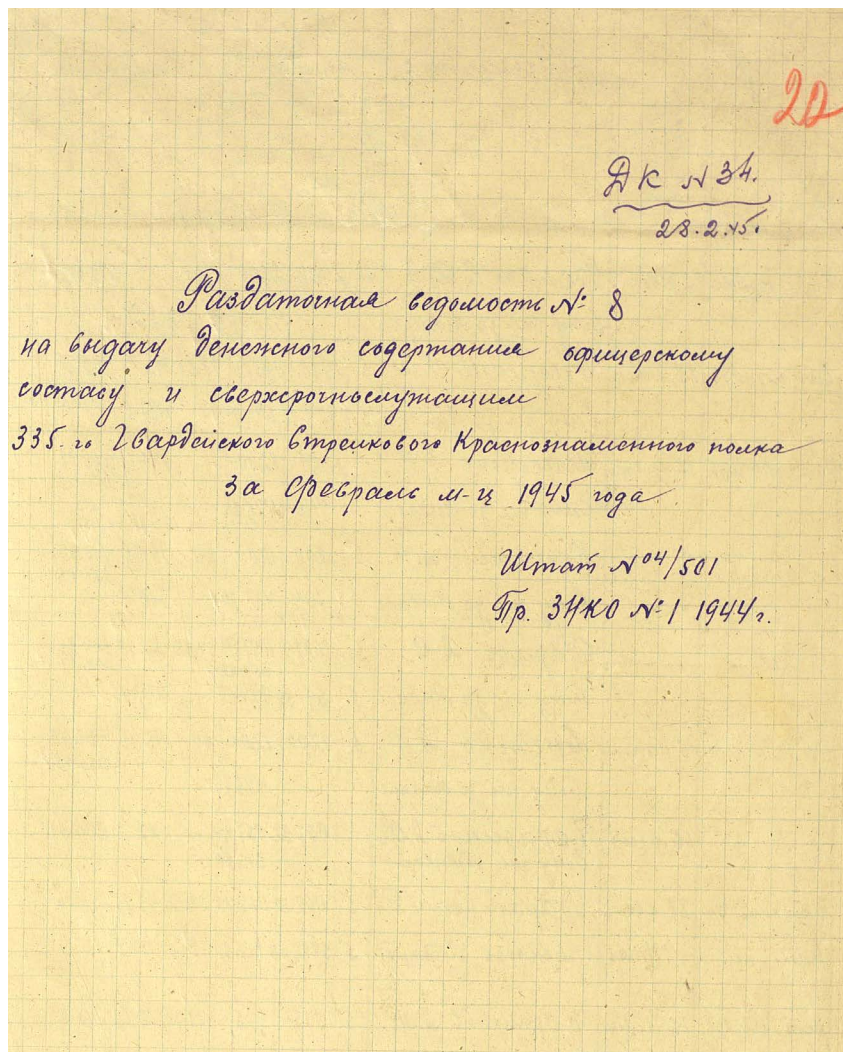 20
ДК № 34.
28.2.45.
Раздаточная ведомость № 8
на выдачу денежного содержания офицерскому
составу и сверхсрочнослужащим
335-го Гвардейского Стрелкового Краснознаменного полка
За февраль м-ц 1945 года
Штат № 04/501
Пр. ЗНКО № 1 1944 г.